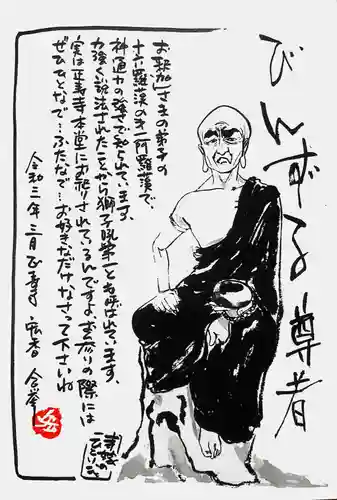 びんずる尊者
お釈迦さまの弟子の
十六羅漢の第一阿羅漢で、
神通力の強さで知られています。
力強く説法されたことから獅子吼第一とも呼ばれています、
実は正寿寺本堂にお祀りされているんですよ、お参りの際には
ぜひひとなで…ふたなで…お好きなだけなさって下さいね
令和三年三月 正寿寺 宏香 合掌